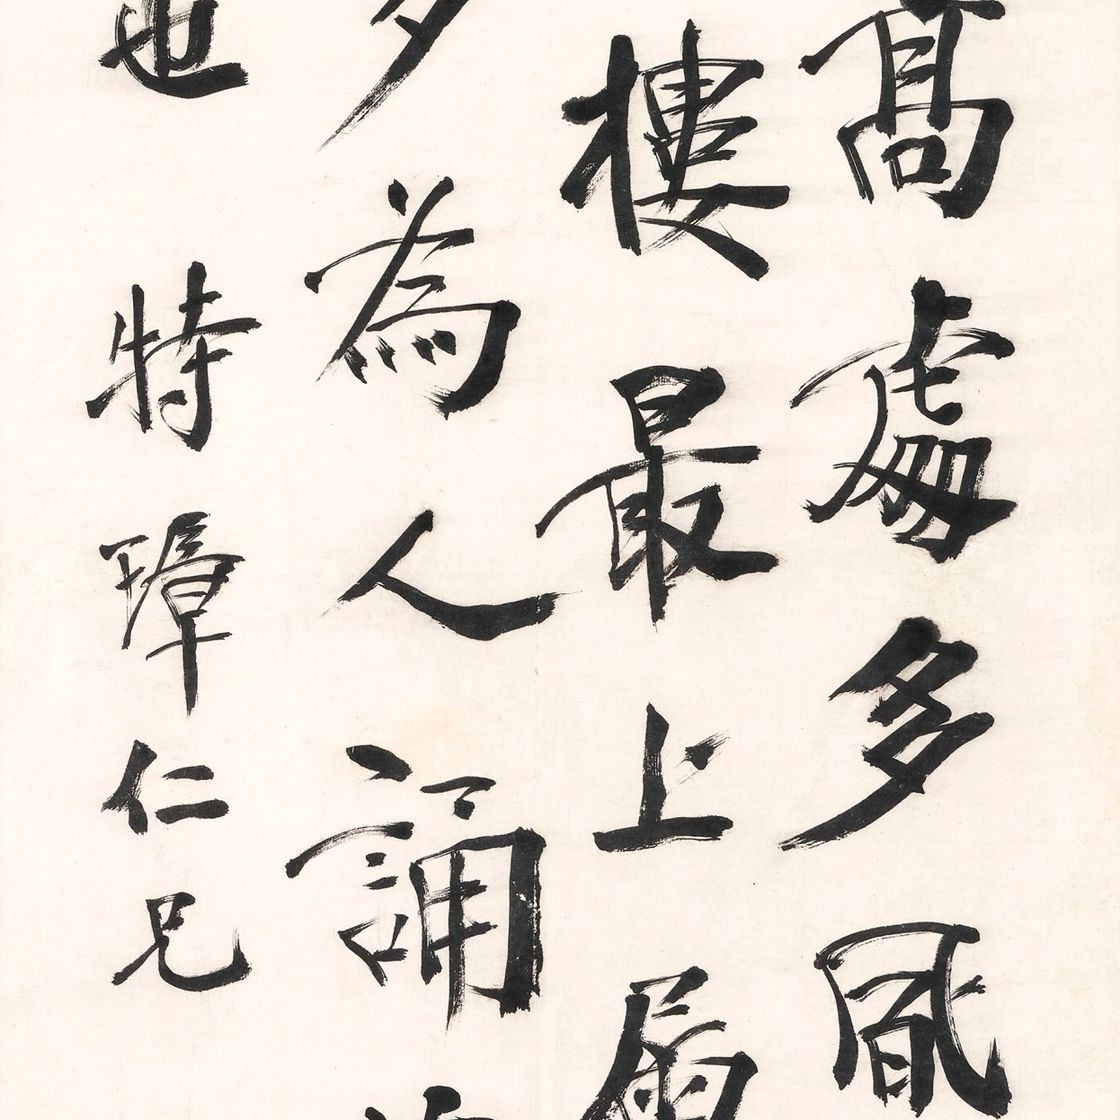 高處多風
樓最上層
多為人誦
也 特璋仁兄